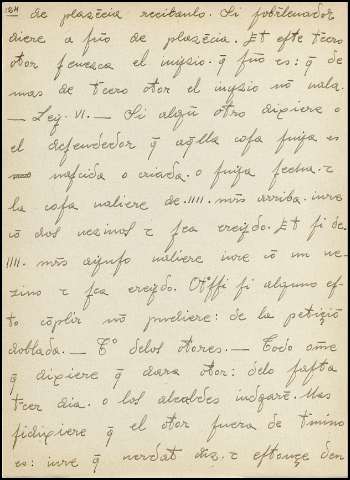 de plasēcia recibanlo. Si sobrleuador
diere a fuo de plasēcia. Et este t̄cero
otor fenesca el iuysio. q̄ fuo es: q̄ de
mas de t̄cero otor el iuysio nō uala.
— Ley. VI. — Si algū otro dixiere o
el defendedor q̄ aq̄lla cosa suya es
nascida o criada. o suya fecha. τ
la cosa ualiere de. IIII. mr̄s arriba. iure
cō dos uezinos τ sea creydo. Et si de.
IIII. mr̄s ayuso ualiere iure cō un ue-
zino τ sea creydo. Otossi si alguno es-
to cōplir nō pudiere: de la petiçiō
doblada. — Tº delos otores. — Todo ome
q̄ dixiere q̄ dara otor: delo fasta
t̄cer dia. o los alcaldes iudgarē. Mas
sidixiere q̄ el otor fuera de t̄mino
es: iure q̄ uerdat diz. τ estonçe den